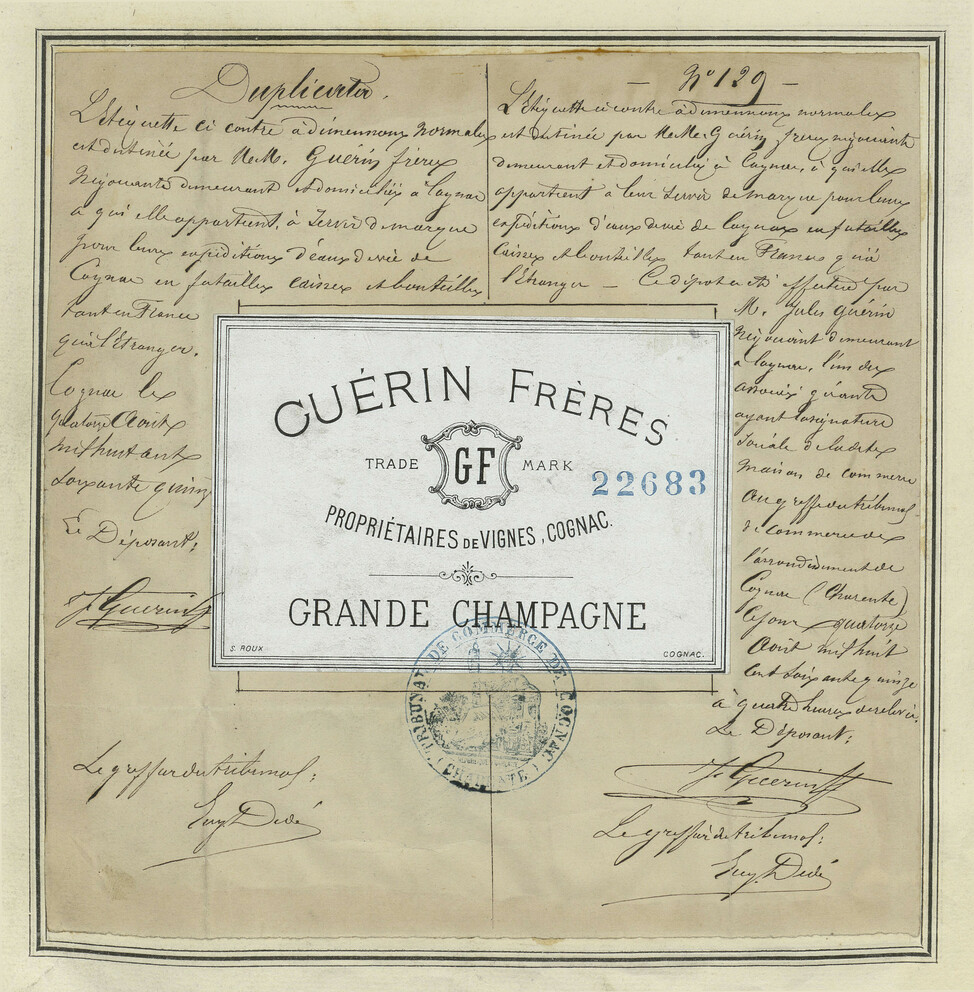 Duplicata.
L'étiquette ci contre à dimensions normales
est destinée par M.M. Guérin frères
Négociants demeurant et domiciliés à Cognac
à qui elle appartient, à servir de marque
pour leurs expéditions d'eaux de vie de
Cognac en futailles caisses et bouteilles
tant en France
qu'à l'Étranger.
Cognac le
quatorze Août
mil huit cent
soixante quinze
Le Déposant:
J Guerin
Le greffier du tribunal:
Eug. Dedé
N° 129
L'étiquette ci contre à dimensions normales
est destinée par M.M. Guérin frères négociants
demeurant et domiciliés à Cognac, à qui elle
appartient à leur servir de marque pour leurs
expéditions d'eaux de vie de Cognac en futailles
caisses et bouteilles tant en France qu'à
l'étranger — Ce dépôt a été effectué par
M. Jules Guérin
Négociant demeurant
à Cognac, l'un des
associés gérants
ayant la signature
sociale de la dite
maison de commerce
au greffe du tribunal
de commerce de
l'arrondissement de
Cognac (Charente)
ce jour quatorze
Août mil huit
cent soixante quinze
à quatre heures de relevée.
Le Déposant:
J Guerin
Le greffier du tribunal:
Eug. Dedé
GUÉRIN FRÈRES
TRADE GF MARK
22683
PROPRIÉTAIRES DE VIGNES, COGNAC.
GRANDE CHAMPAGNE
S. ROUX COGNAC.
TRIBUNAL DE COMMERCE DE COGNAC
(CHARENTE)